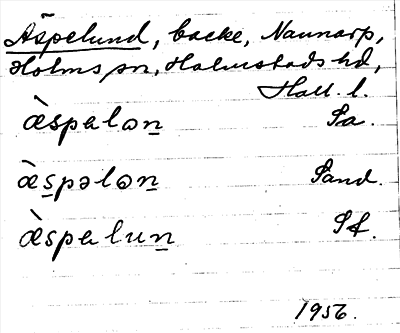 Äspelund, backe, Nannarp,
Holms sn, Halmstads hd,
Hall. l.
æ̀spəlɷn̲ Sa.
æ̀s̲pəlɷn̲ Sand.
æ̀spəlun̲ St.
1956.